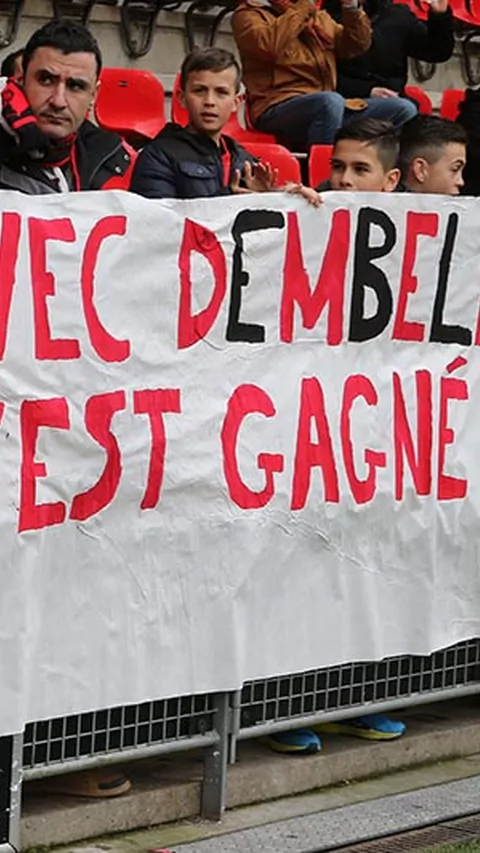 VEC DEMBEL
'EST GAGNÉ